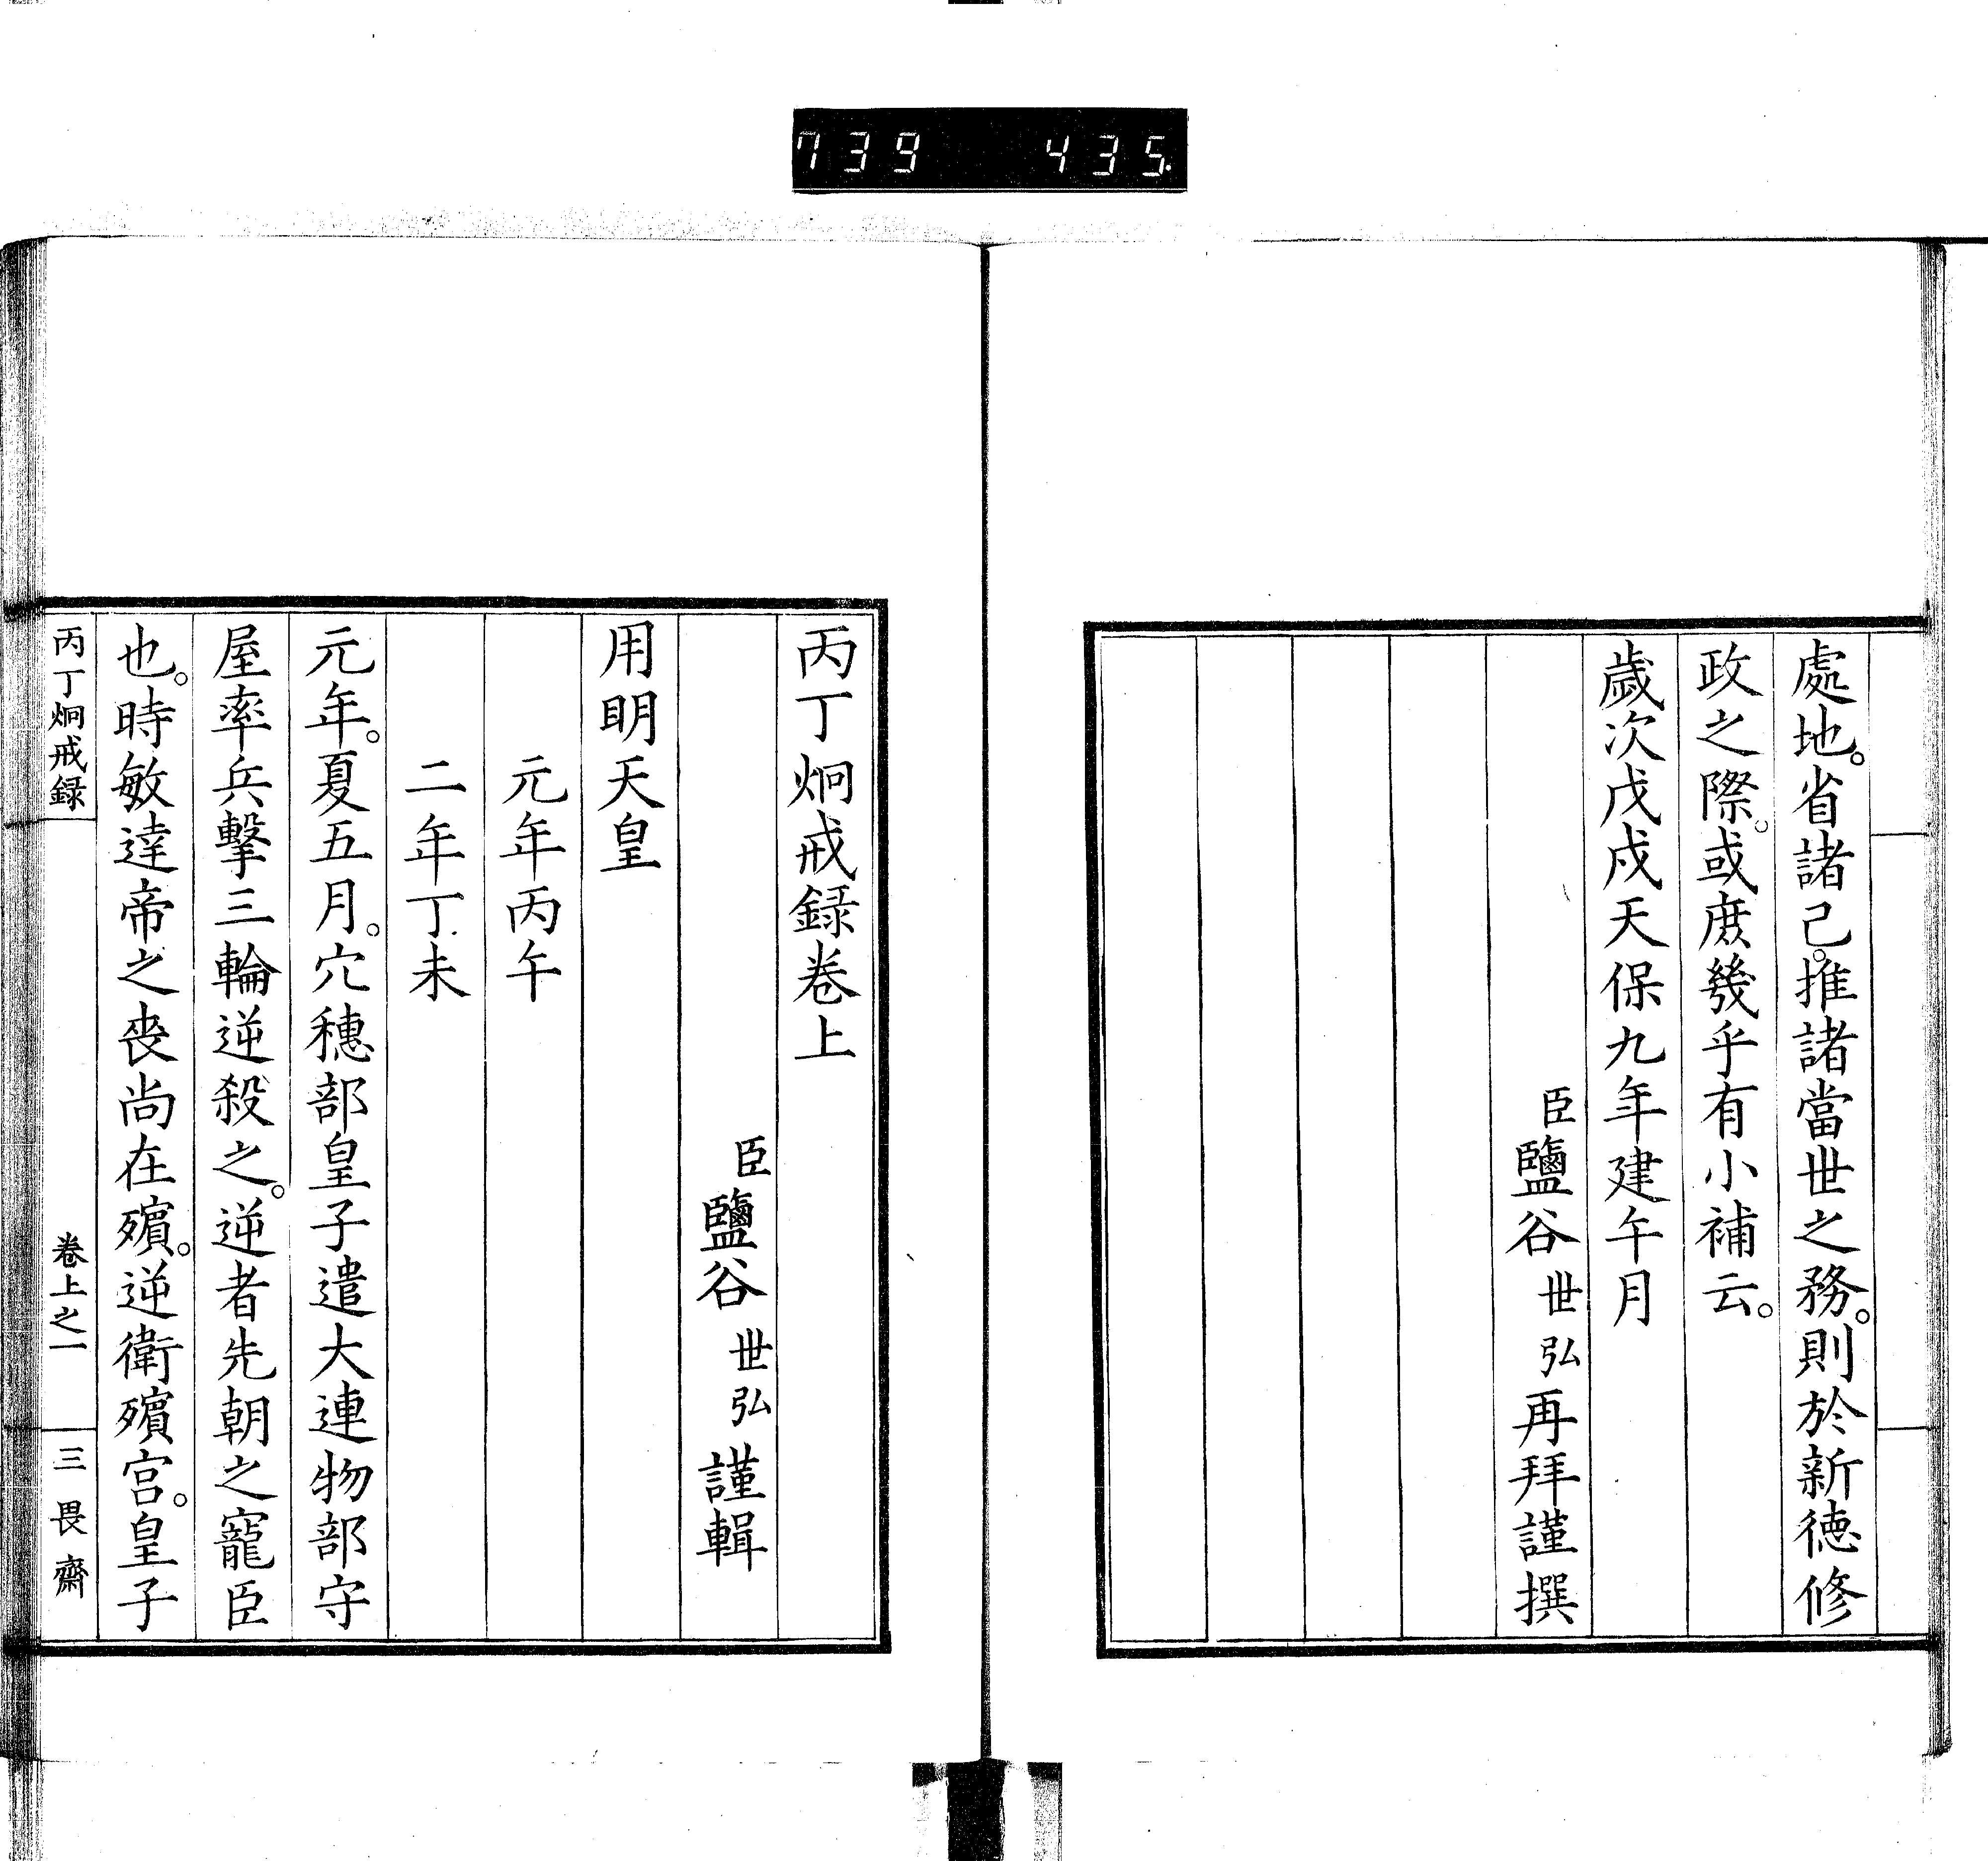 739 435.
處地。省諸己。推諸當世之務。則於新德修
政之際。或庶幾乎有小補云。
歲次戊戌天保九年建午月
臣鹽谷世弘再拜謹撰
丙丁烱戒録卷上
臣鹽谷世弘謹輯
用明天皇
元年丙午
二年丁未
元年。夏五月。穴穗部皇子遣大連物部守
屋率兵擊三輪逆殺之。逆者先朝之寵臣
也。時敏達帝之喪尚在殯。逆衛殯宮。皇子
丙丁烱戒録 卷上之一 三畏齋